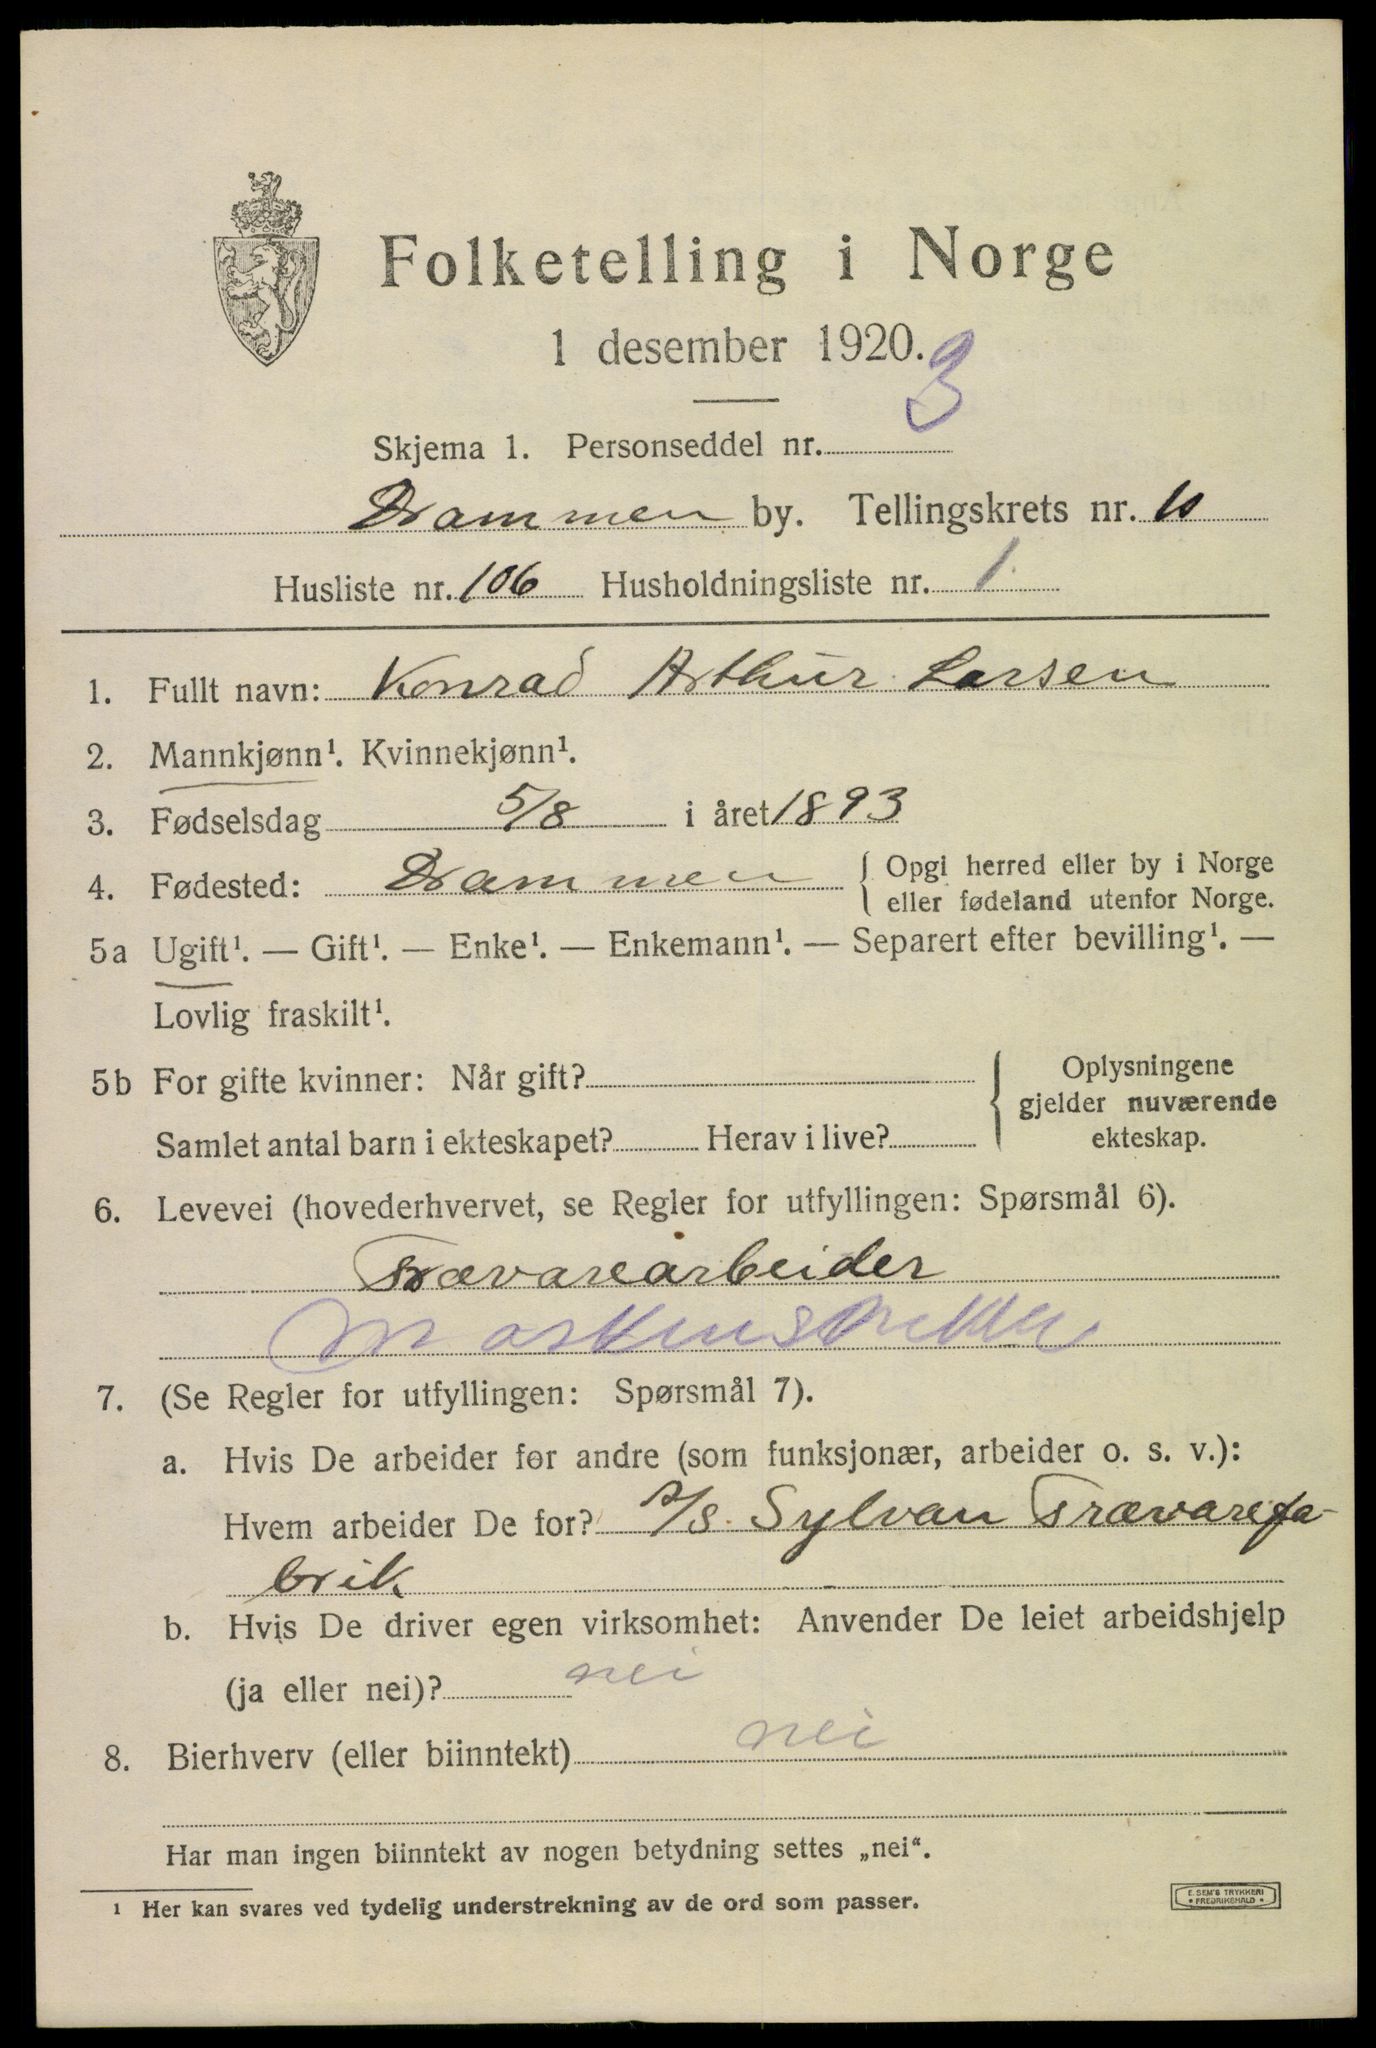 Folketelling i Norge
1 desember 1920.
Skjema 1. Personseddel nr. 3
Drammen by. Tellingskrets nr. 10
Husliste nr. 106 Husholdningsliste nr. 1.
1. Fullt navn: Konrad Arthur Larsen
2. Mannkjønn¹. Kvinnekjønn¹.
3. Fødselsdag 5/8 i året 1893
4. Fødested: Drammen { Opgi herred eller by i Norge
eller fødeland utenfor Norge.
5a Ugift¹. — Gift¹. — Enke¹. — Enkemann¹. — Separert efter bevilling¹. —
Lovlig fraskilt¹.
5b For gifte kvinner: Når gift?
Samlet antal barn i ekteskapet? Herav i live?
Oplysningene
gjelder nuværende
ekteskap.
6. Levevei (hovederhvervet, se Regler for utfyllingen: Spørsmål 6).
Trævarearbeider
Maskinsnekker
7. (Se Regler for utfyllingen: Spørsmål 7).
a. Hvis De arbeider for andre (som funksjonær, arbeider o. s. v.):
Hvem arbeider De for? A/S. Sylvan Trævarefa-
brik
b. Hvis De driver egen virksomhet: Anvender De leiet arbeidshjelp
(ja eller nei)? nei
8. Bierhverv (eller biinntekt) nei
Har man ingen biinntekt av nogen betydning settes „nei“.
¹ Her kan svares ved tydelig understrekning av de ord som passer.
E. SEM'S TRYKKERI
• FREDRIKSHALD •